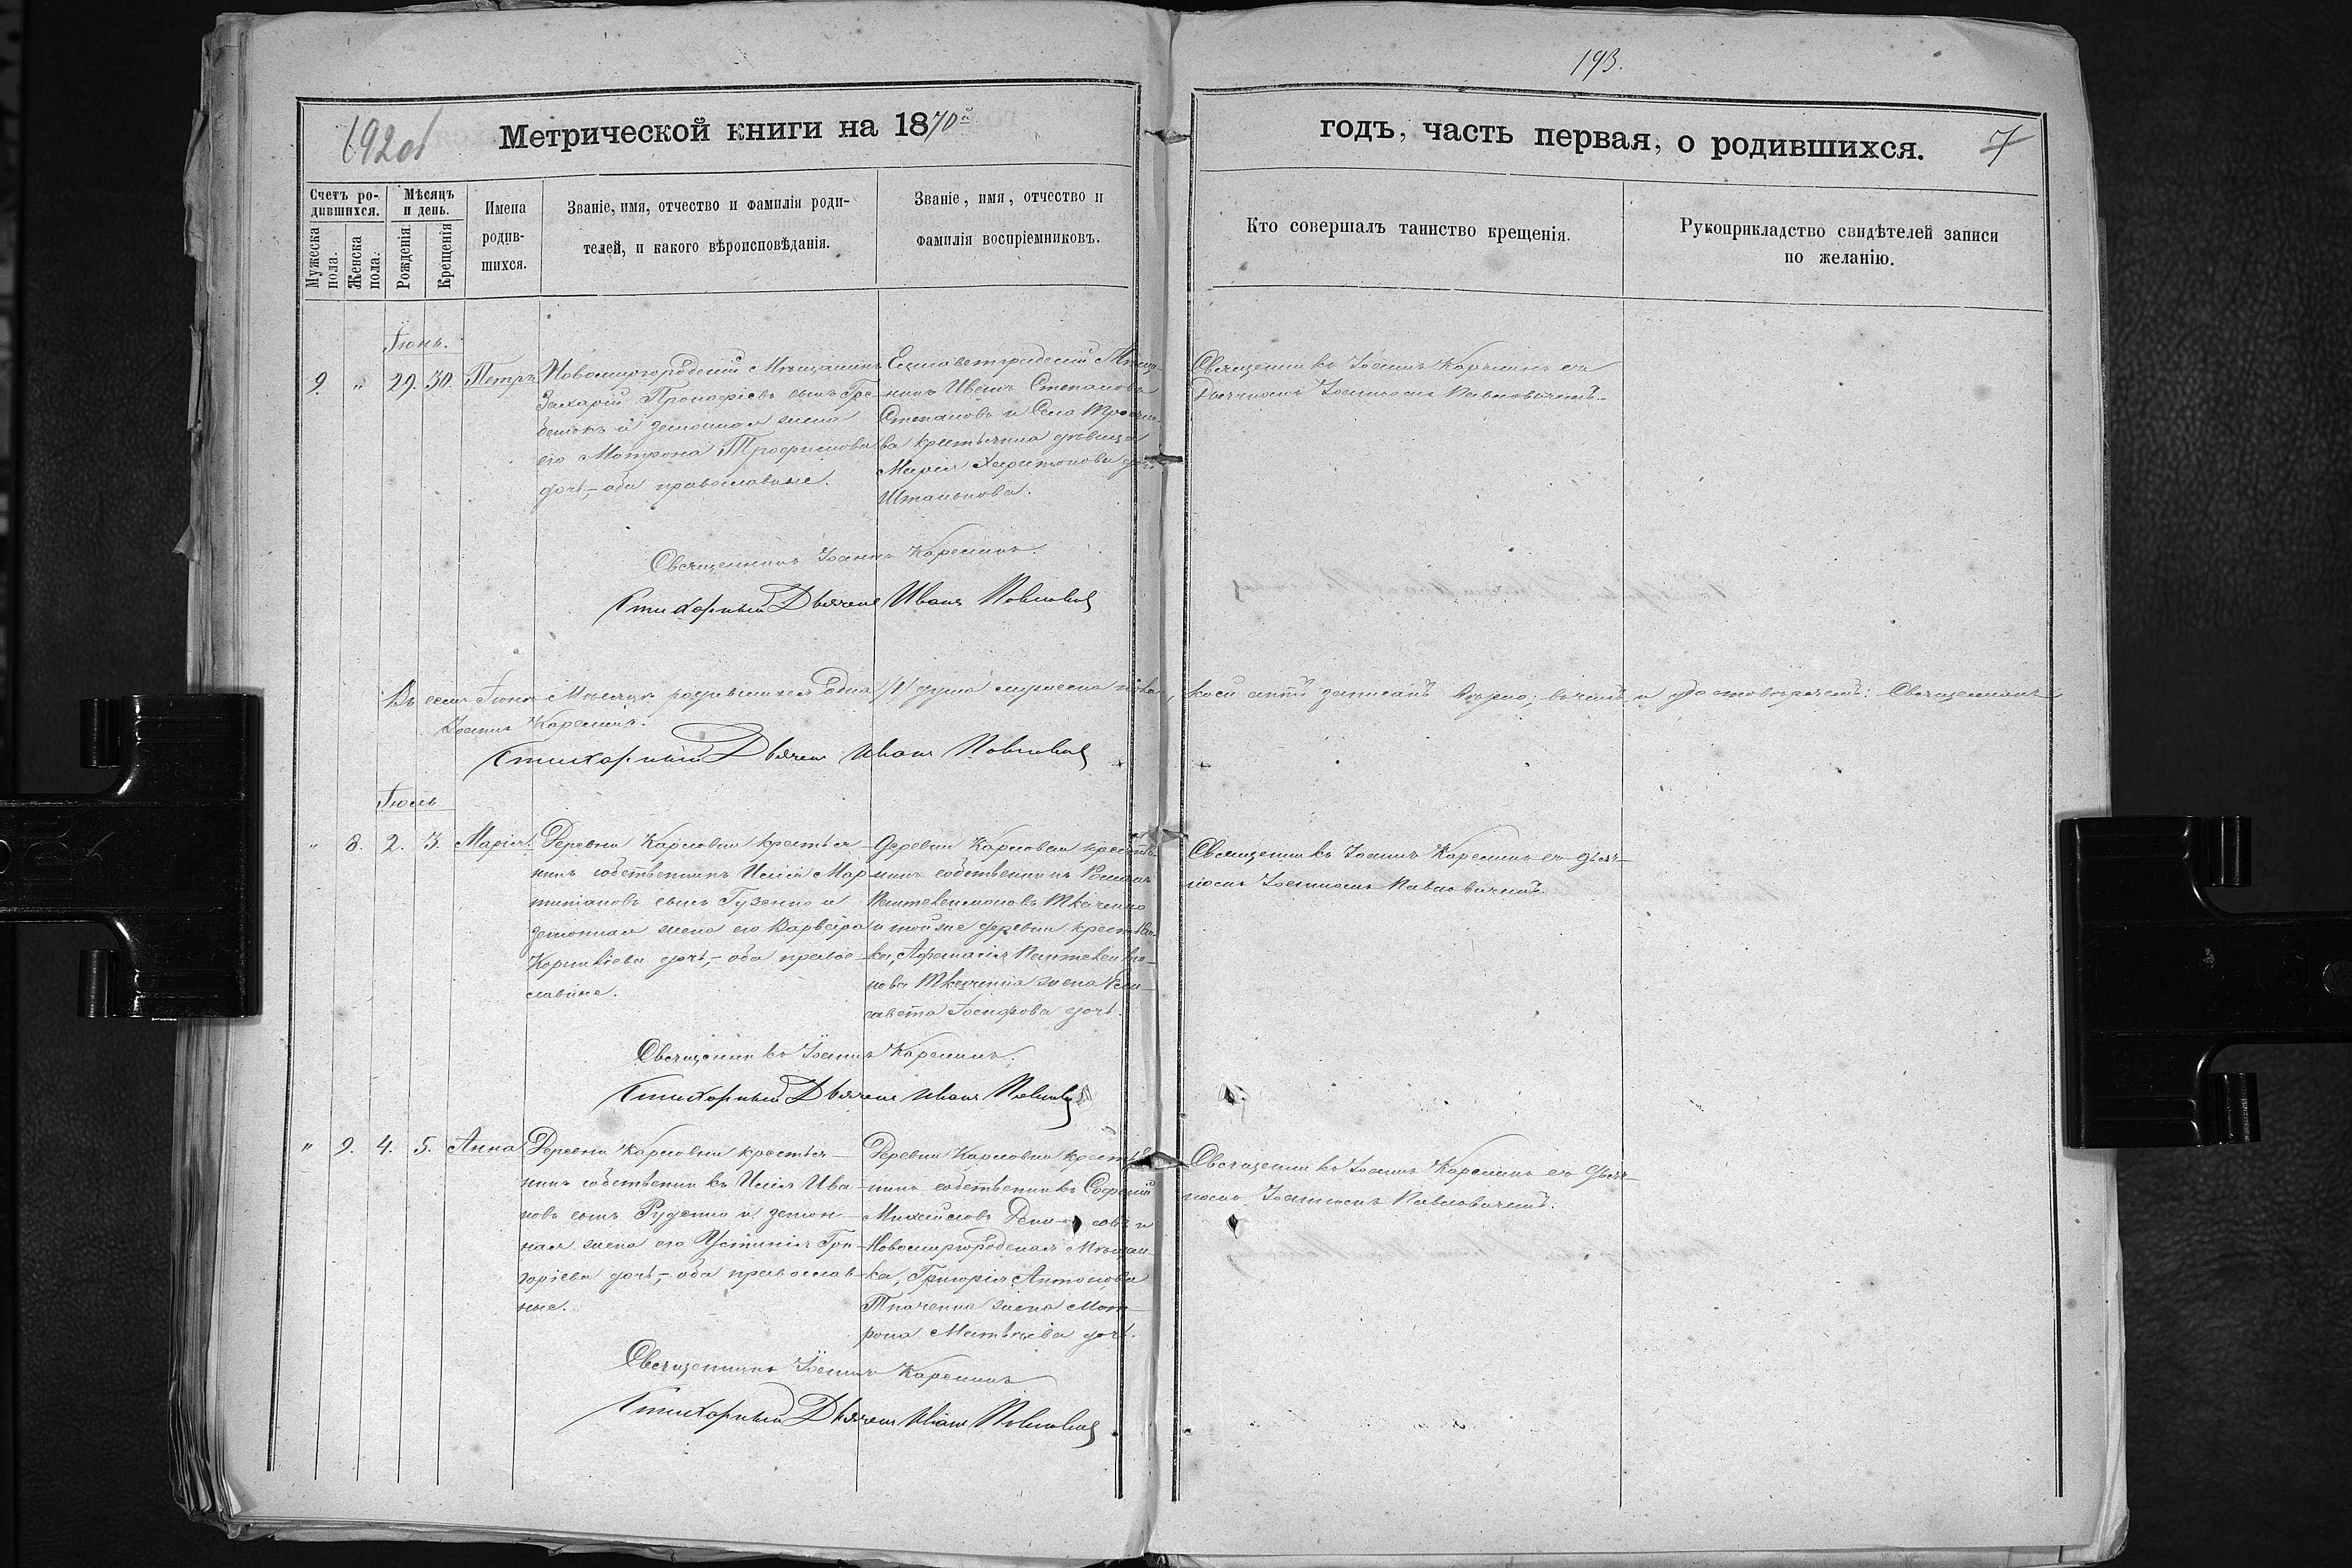 193.
192об
Метрической книги на 1870й
годъ, часть первая, о родившихся.
7
Счетъ ро-
дившихся.
Мужеска
пола.
Женска
пола.
Мѣсяцъ
и день.
Рожденія.
Крещенія
Имена
родив-
шихся.
Званіе, имя, отчество и фамилія роди-
телей, и какого вѣроисповѣданія.
Званіе, имя, отчество и
фамилія воспріемниковъ.
Кто совершалъ таинство крещенія.
Рукоприкладство свидѣтелей записи
по желанію.
Іюнь.
9. " 29. 30. Петръ
Новомиргородскій Мѣщанинъ
Захарій Прокофіевъ сынъ Гре-
и законная жена
его Матрона Трофимова
дочь,- оба православные.
Елисаветградскій Мѣща-
нинъ Иванъ Степановъ
Степановъ и Села
крестьянка дѣвица
Марія Харитонова дочь
Штанькова.
Священникъ Іоаннъ Карелинъ съ
Дьячкомъ Іоанномъ Павловичемъ.
Священникъ Іоаннъ Карелинъ.
Стихарный Дьячекъ Иванъ Павловичъ
Въ семъ Іюнѣ Мѣсяцѣ родившихся одна /1/ душа мужеска пола,
коей актъ записанъ вѣрно; въ чемъ и удостовѣряемъ: Священникъ
Іоаннъ Карелинъ.
Стихарный Дьячекъ Иванъ Павловичъ
Іюль
" 8. 2. 3. Марія.
Деревни Карловки крестья-
нинъ собственникъ Илія Мар-
тиновъ сынъ Гузенко и
законная жена его Варвара
Корнилова дочь,- оба правос-
лавные.
Деревни Карловки крестья-
нинъ собственникъ Романъ
Пантелеимоновъ Ткаченко
и тойже деревни крестьян-
ка, Афанасія Пантелеимо-
нова Ткаченка жена Ели-
савета Іосифова дочь.
Священникъ Іоаннъ Карелинъ съ дьяч-
комъ Іоанномъ Павловичемъ.
Священникъ Іоаннъ Карелинъ.
Стихарный Дьячекъ Иванъ Павловичъ
" 9. 4. 5. Анна
Деревни Карловки крестья-
нинъ собственникъ Илія Ива-
новъ сынъ Руденко и закон-
ная жена его Устинія Гри-
горіева дочь,- оба православ-
ные.
Деревни Карловки крестья-
нинъ собственникъ Софроній
Михаиловъ и
Новомиргородская Мѣщан-
ка, Григорія Антонова
Ткаченка жена Мат-
рона Матвѣева дочь.
Священникъ Іоаннъ Карелинъ съ дьяч-
комъ Іоанномъ Павловичемъ.
Священникъ Іоаннъ Карелинъ
Стихарный Дьячекъ Иванъ Павловичъ